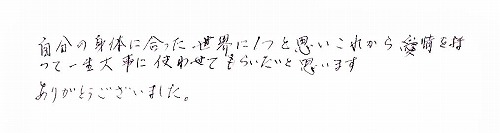 自分の身体に合った世界に1つと思いこれから愛情を持
って一生大事に使わせてもらいたいと思います
ありがとうございました。